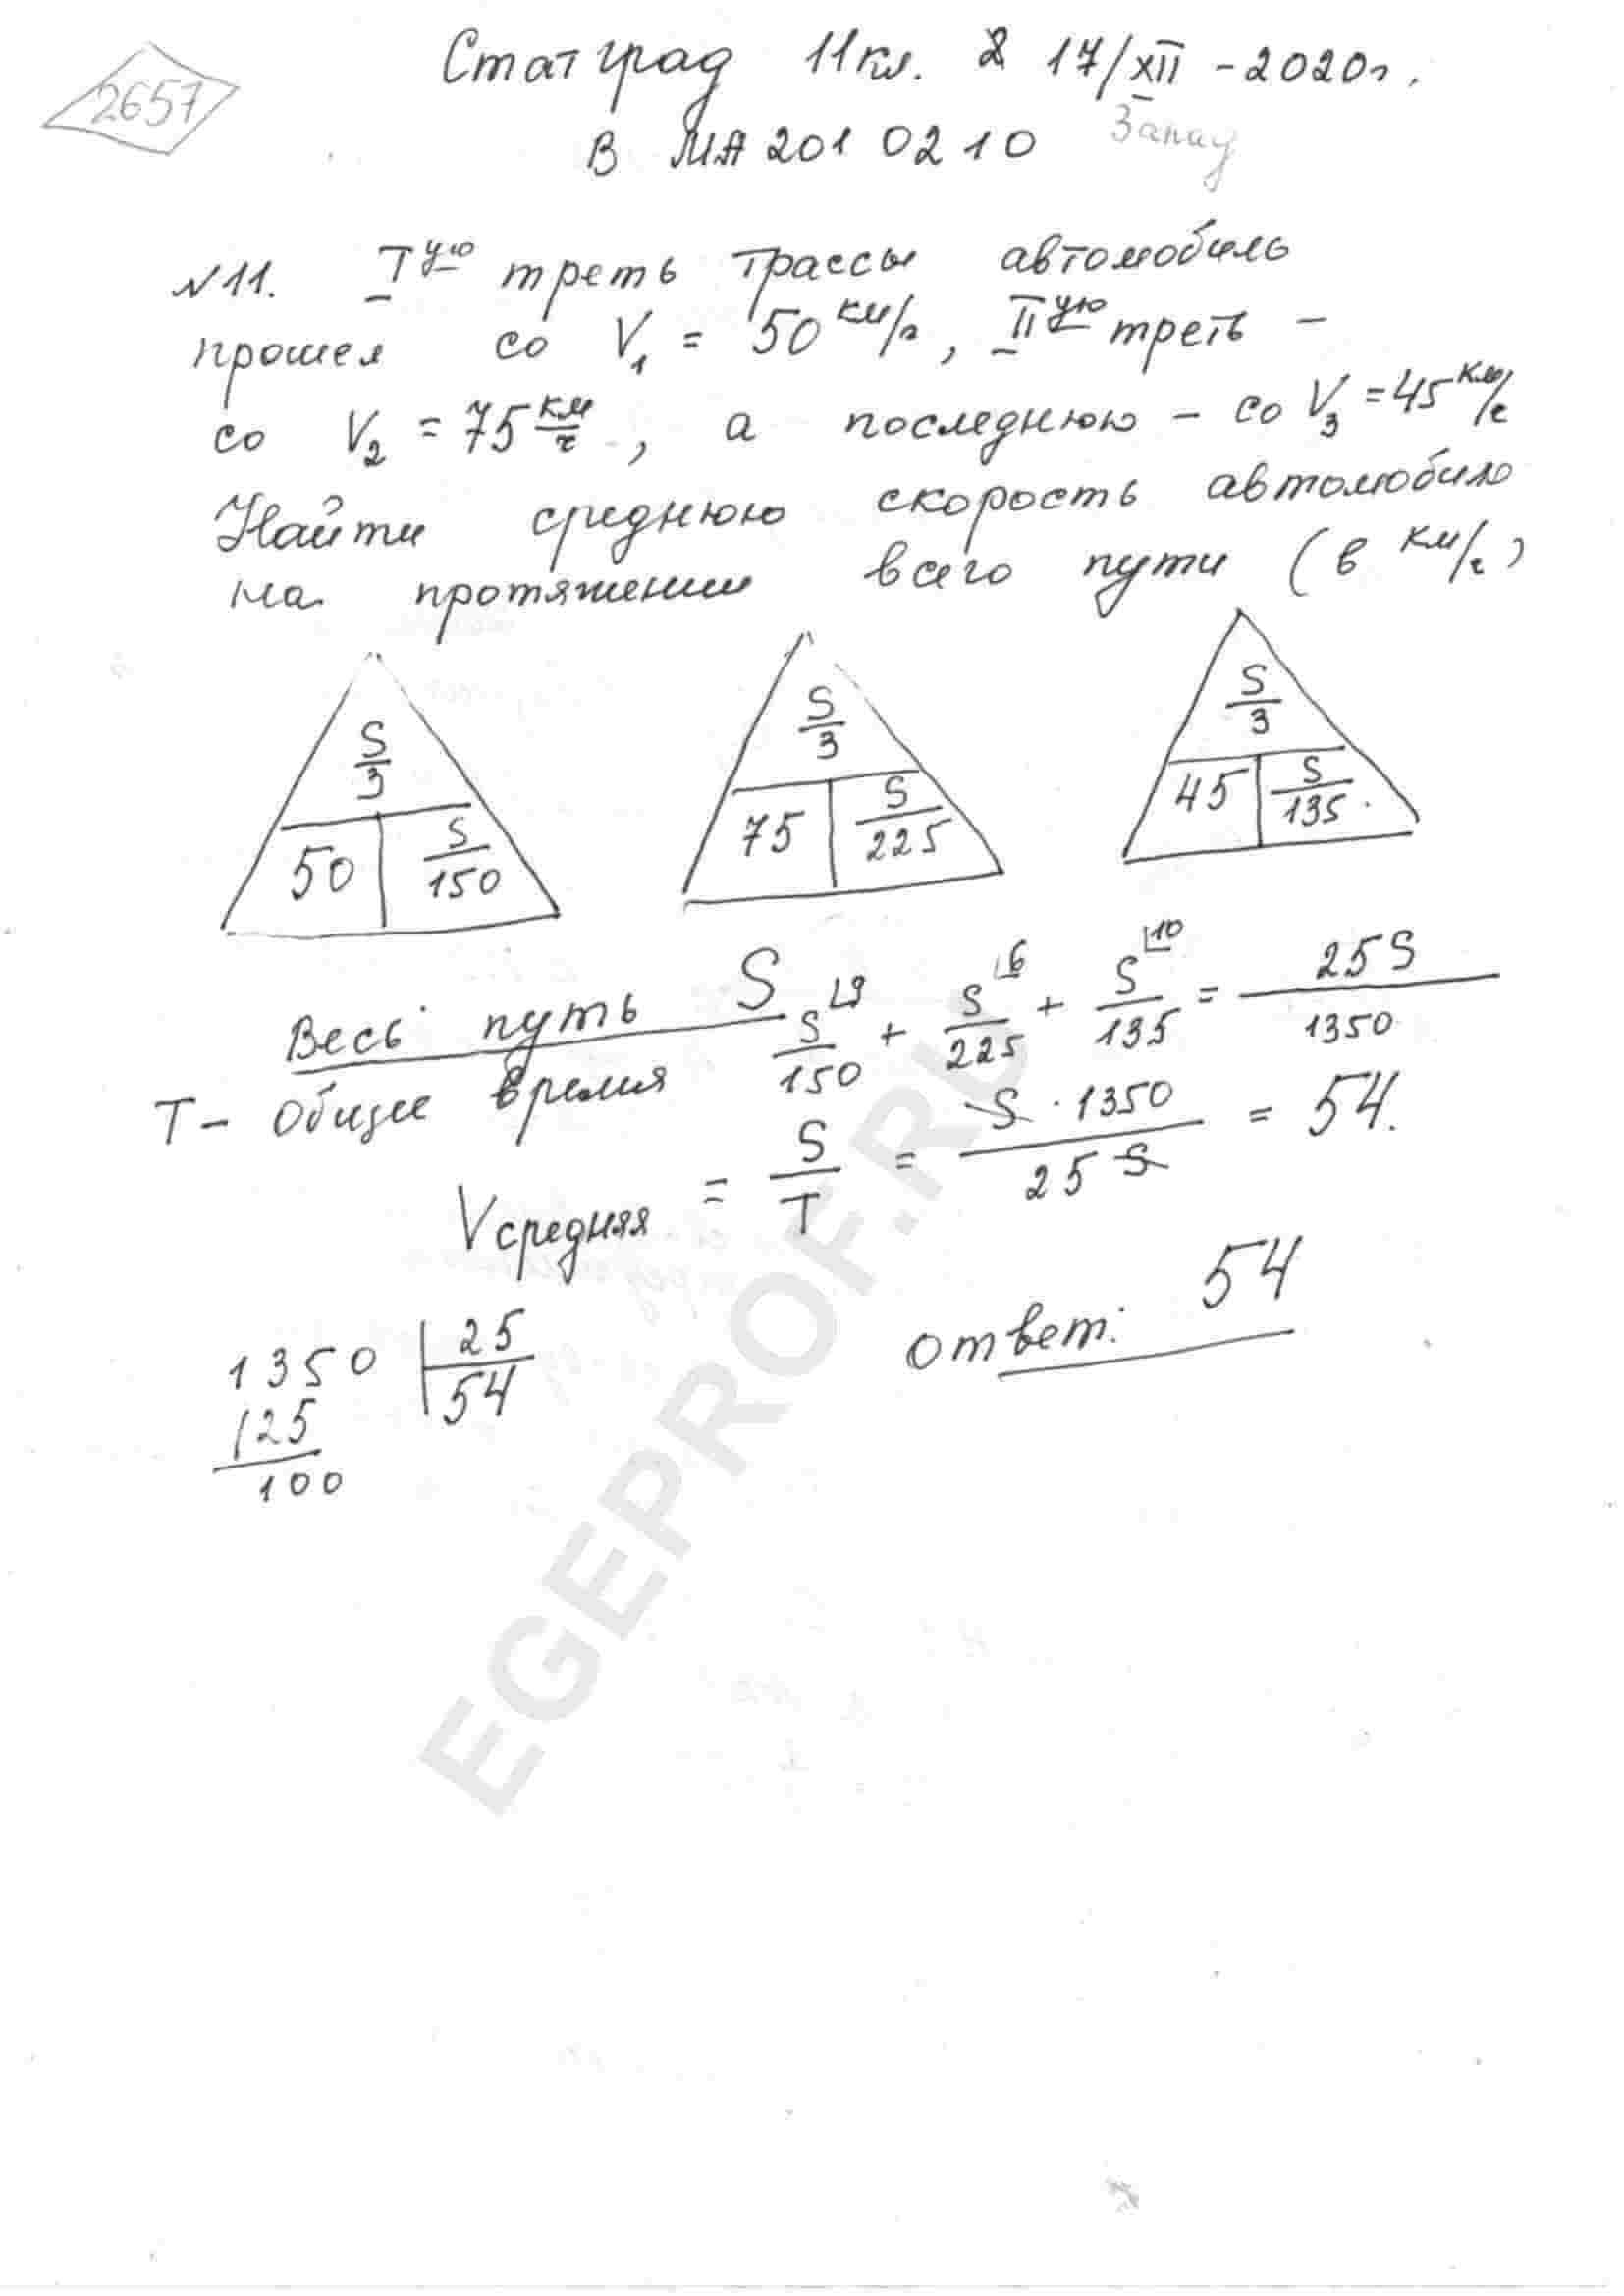 2657
Статград 11кл. 17/XII-2020г.
В МА2010210 Запад
№11. Iую треть трассы автомобиль
прошел со V₁ = 50 км/ч, IIую треть -
со V₂ = 75 км/ч, а последнюю - со V₃ = 45 км/ч
Найти среднюю скорость автомобиля
на протяжении всего пути (в км/ч)
S/3 S/3 S/3
50 S/150 75 S/225 45 S/135
Весь путь S
T - общее время S/150 ⌊9 + S/225 ⌊6 + S/135 ⌊10 = 25S/1350
Vсредняя = S/T = S · 1350/25 S = 54.
Ответ: 54
1350 | 25
125 54
100
EGEPROF.RU